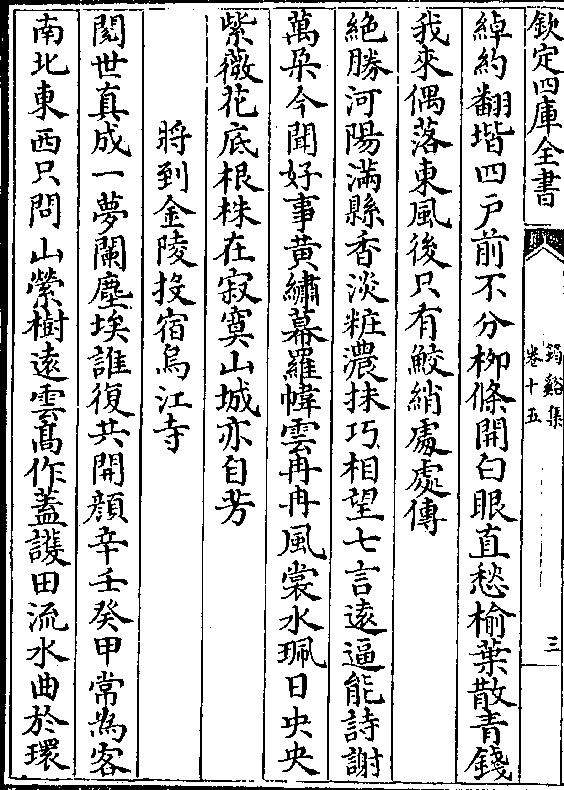 欽定四庫全書
筠谿集
卷十五
三
綽約翻堦四戸前不分栁條開白眼直愁榆葉散青錢
我來偶落東風後只有鮫綃處處傳
絶勝河陽滿縣香淡粧濃抹巧相望七言逺逼能詩謝
萬朶今聞好事黄繡幕羅幃雲冉冉風裳水珮日央央
紫薇花底根株在寂寞山城亦自芳
將到金陵投宿烏江寺
閱世真成一夢闌塵埃誰復共開顔辛壬癸甲常為客
南北東西只問山縈樹遠雲髙作蓋護田流水曲於環